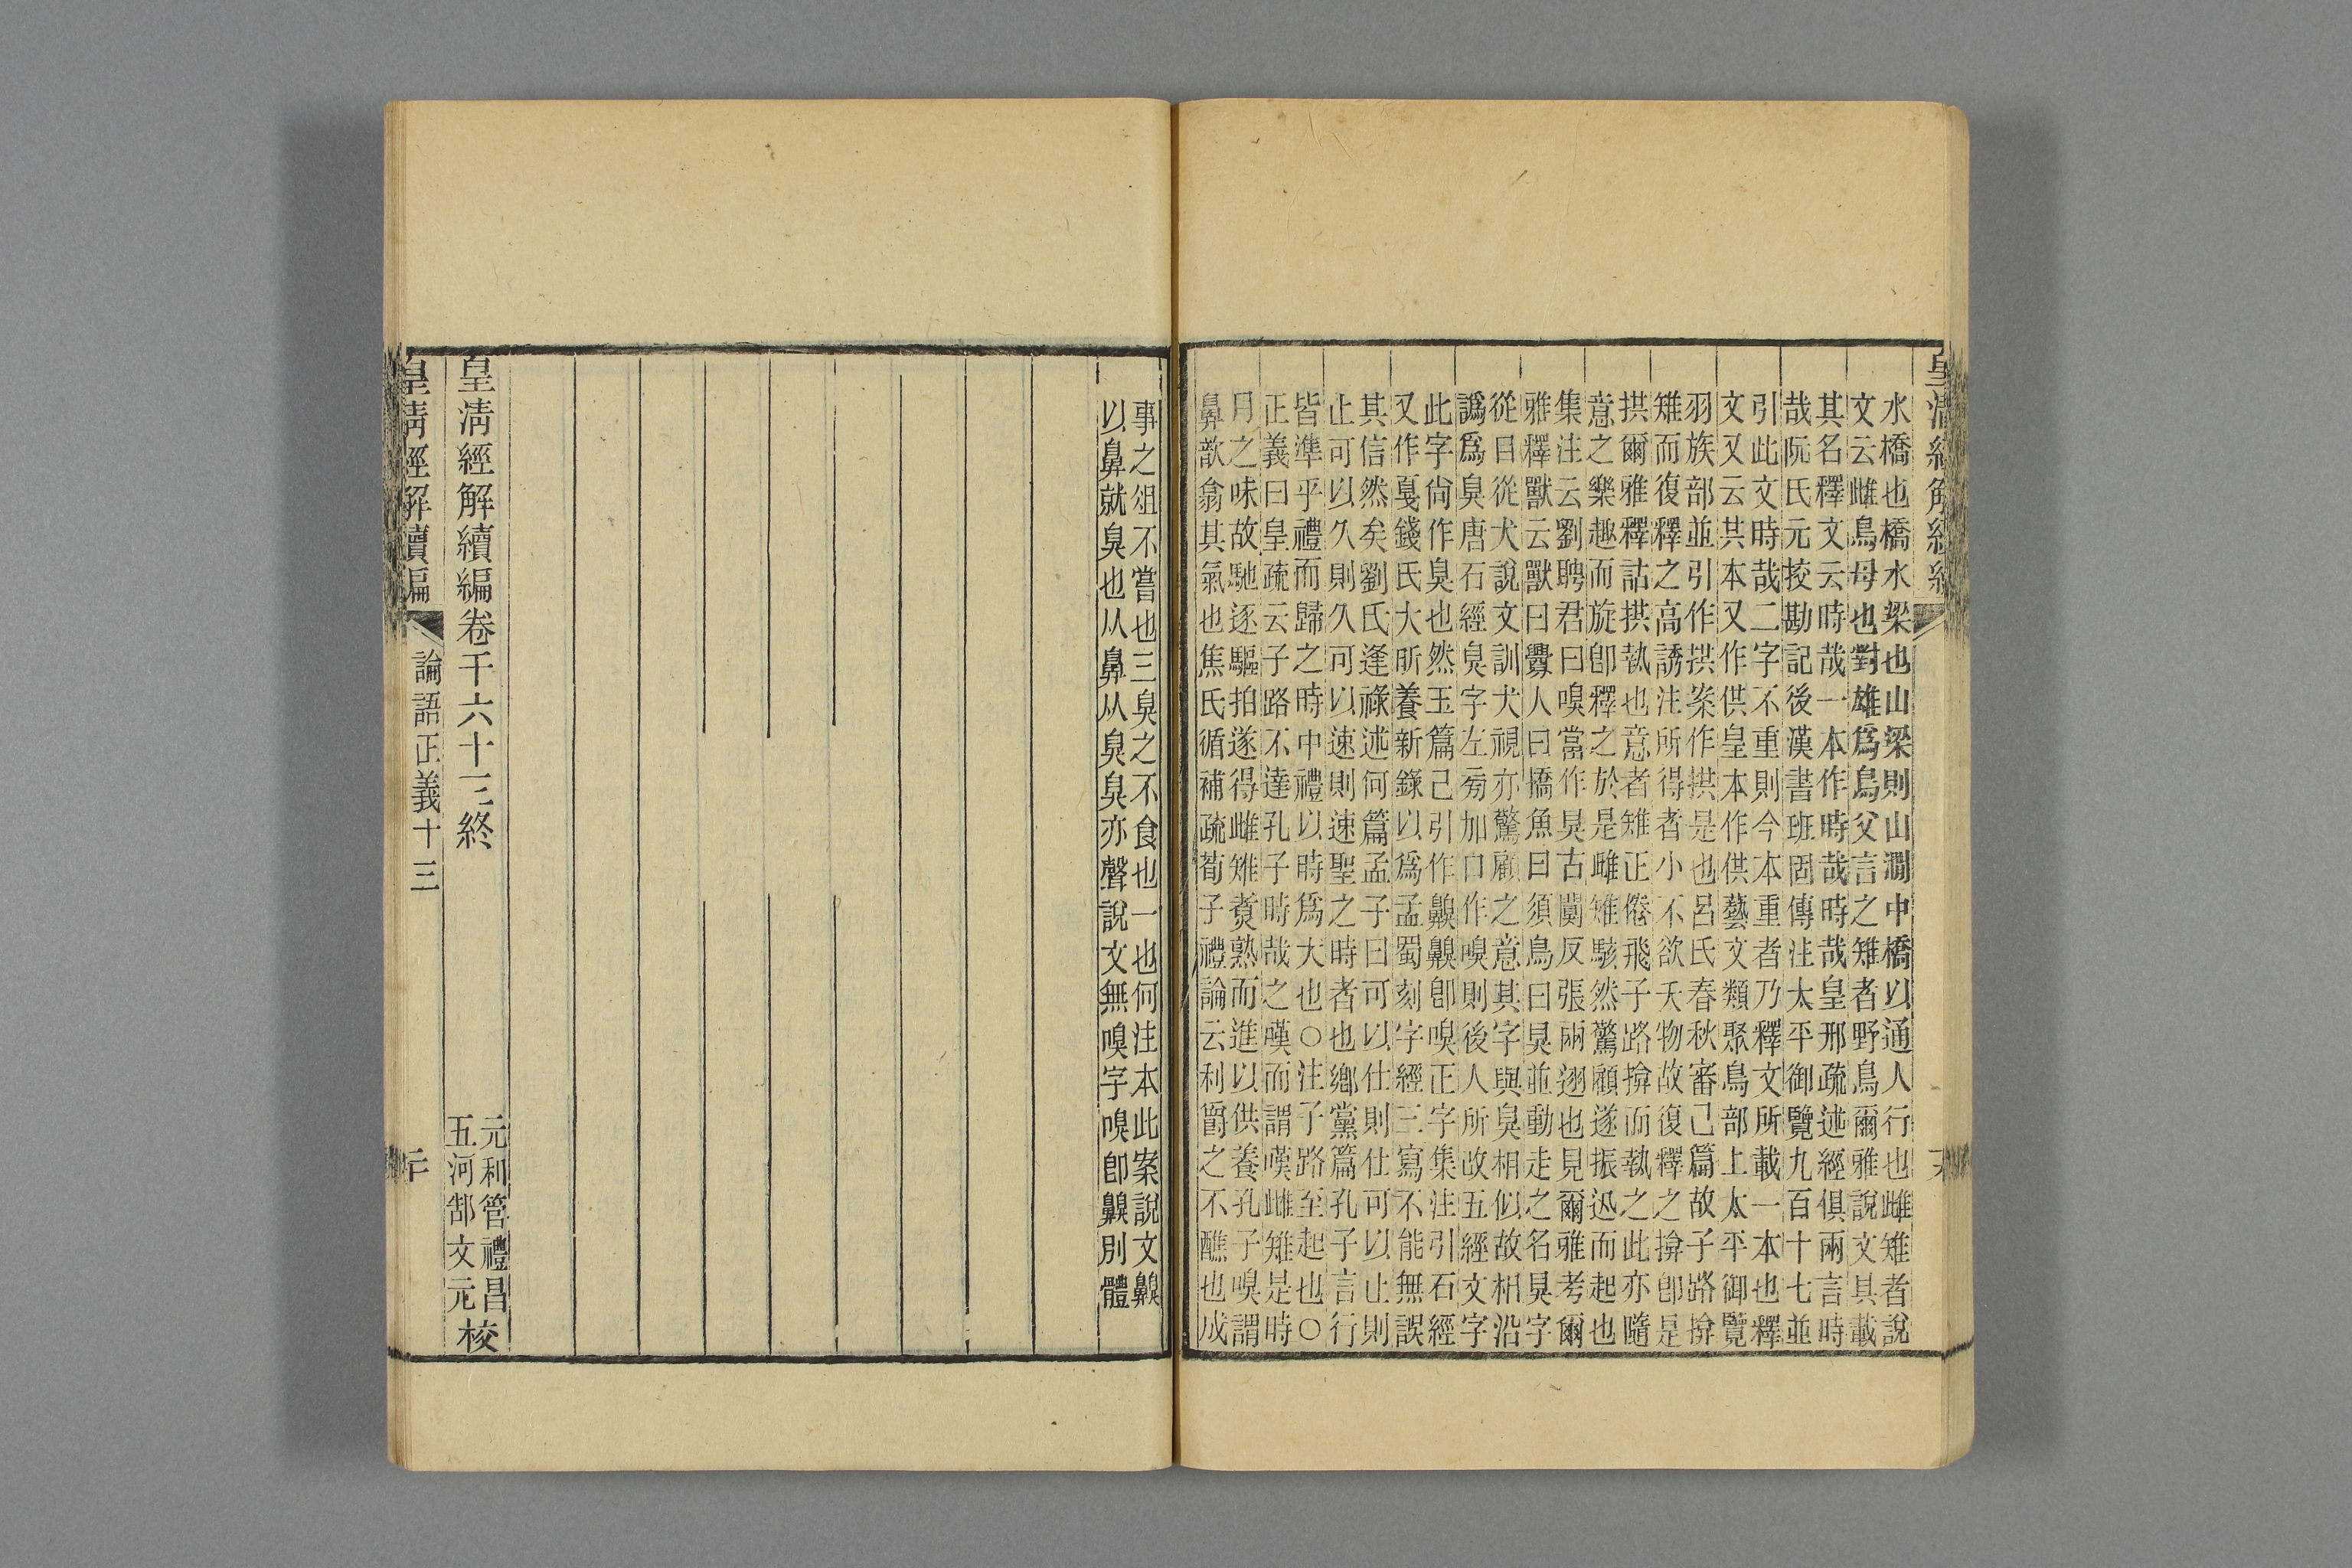 水橋也橋水梁也山梁則山澗中橋以通人行也雌雉者說
文云雌鳥母也對雄爲鳥父言之雉者野鳥爾雅說文具載
其名釋文云時哉一本作時哉時哉皇邢疏述經俱兩言時
哉阮氏元挍勘記後漢書班固傳注太平御覽九百十七並
引此文時哉二字不重則今本重者乃釋文所載一本也釋
文又云其本又作供皇本作供藝文類聚鳥部上太平御覽
羽族部並引作拱案作拱是也呂氏春秋審己篇故子路揜
雉而復釋之高誘注所得者小不欲夭物故復釋之揜卽是
拱爾雅釋詁拱執也意者雉正倦飛子路揜而執之此亦隨
意之樂趣而旋卽釋之於是雌雉駭然驚顧遂振迅而起也
集注云劉聘君曰嗅當作狊古闃反張兩翅也見爾雅考爾
雅釋獸云獸曰釁人曰撟魚曰須鳥曰狊並動走之名狊字
從目從犬說文訓犬視亦驚顧之意其字與臭相似故相沿
譌爲臭唐石經臭字左旁加口作嗅則後人所改五經文字
此字尙作臭也然玉篇已引作齅齅卽嗅正字集注引石經
又作戛錢氏大昕養新錄以爲孟蜀刻字經三寫不能無誤
其信然矣劉氏逢祿述何篇孟子曰可以仕則仕可以止則
止可以久則久可以速則速聖之時者也鄉黨篇孔子言行
皆準乎禮而歸之時中禮以時爲大也○注子路至起也○
正義曰皇疏云子路不達孔子時哉之嘆而謂嘆雌雉是時
月之味故馳逐驅拍遂得雌雉煑熟而進以供養孔子嗅謂
鼻歆翕其氣也焦氏循補疏荀子禮論云利爵之不醮也成
事之俎不嘗也三臭之不食也一也何注本此案說文齅
以鼻就臭也从鼻从臭臭亦聲說文無嗅字嗅卽齅別體
皇淸經解續編卷千六十三終
元和管禮昌
五河郜文元校
皇淸經解續編
論語正義十三